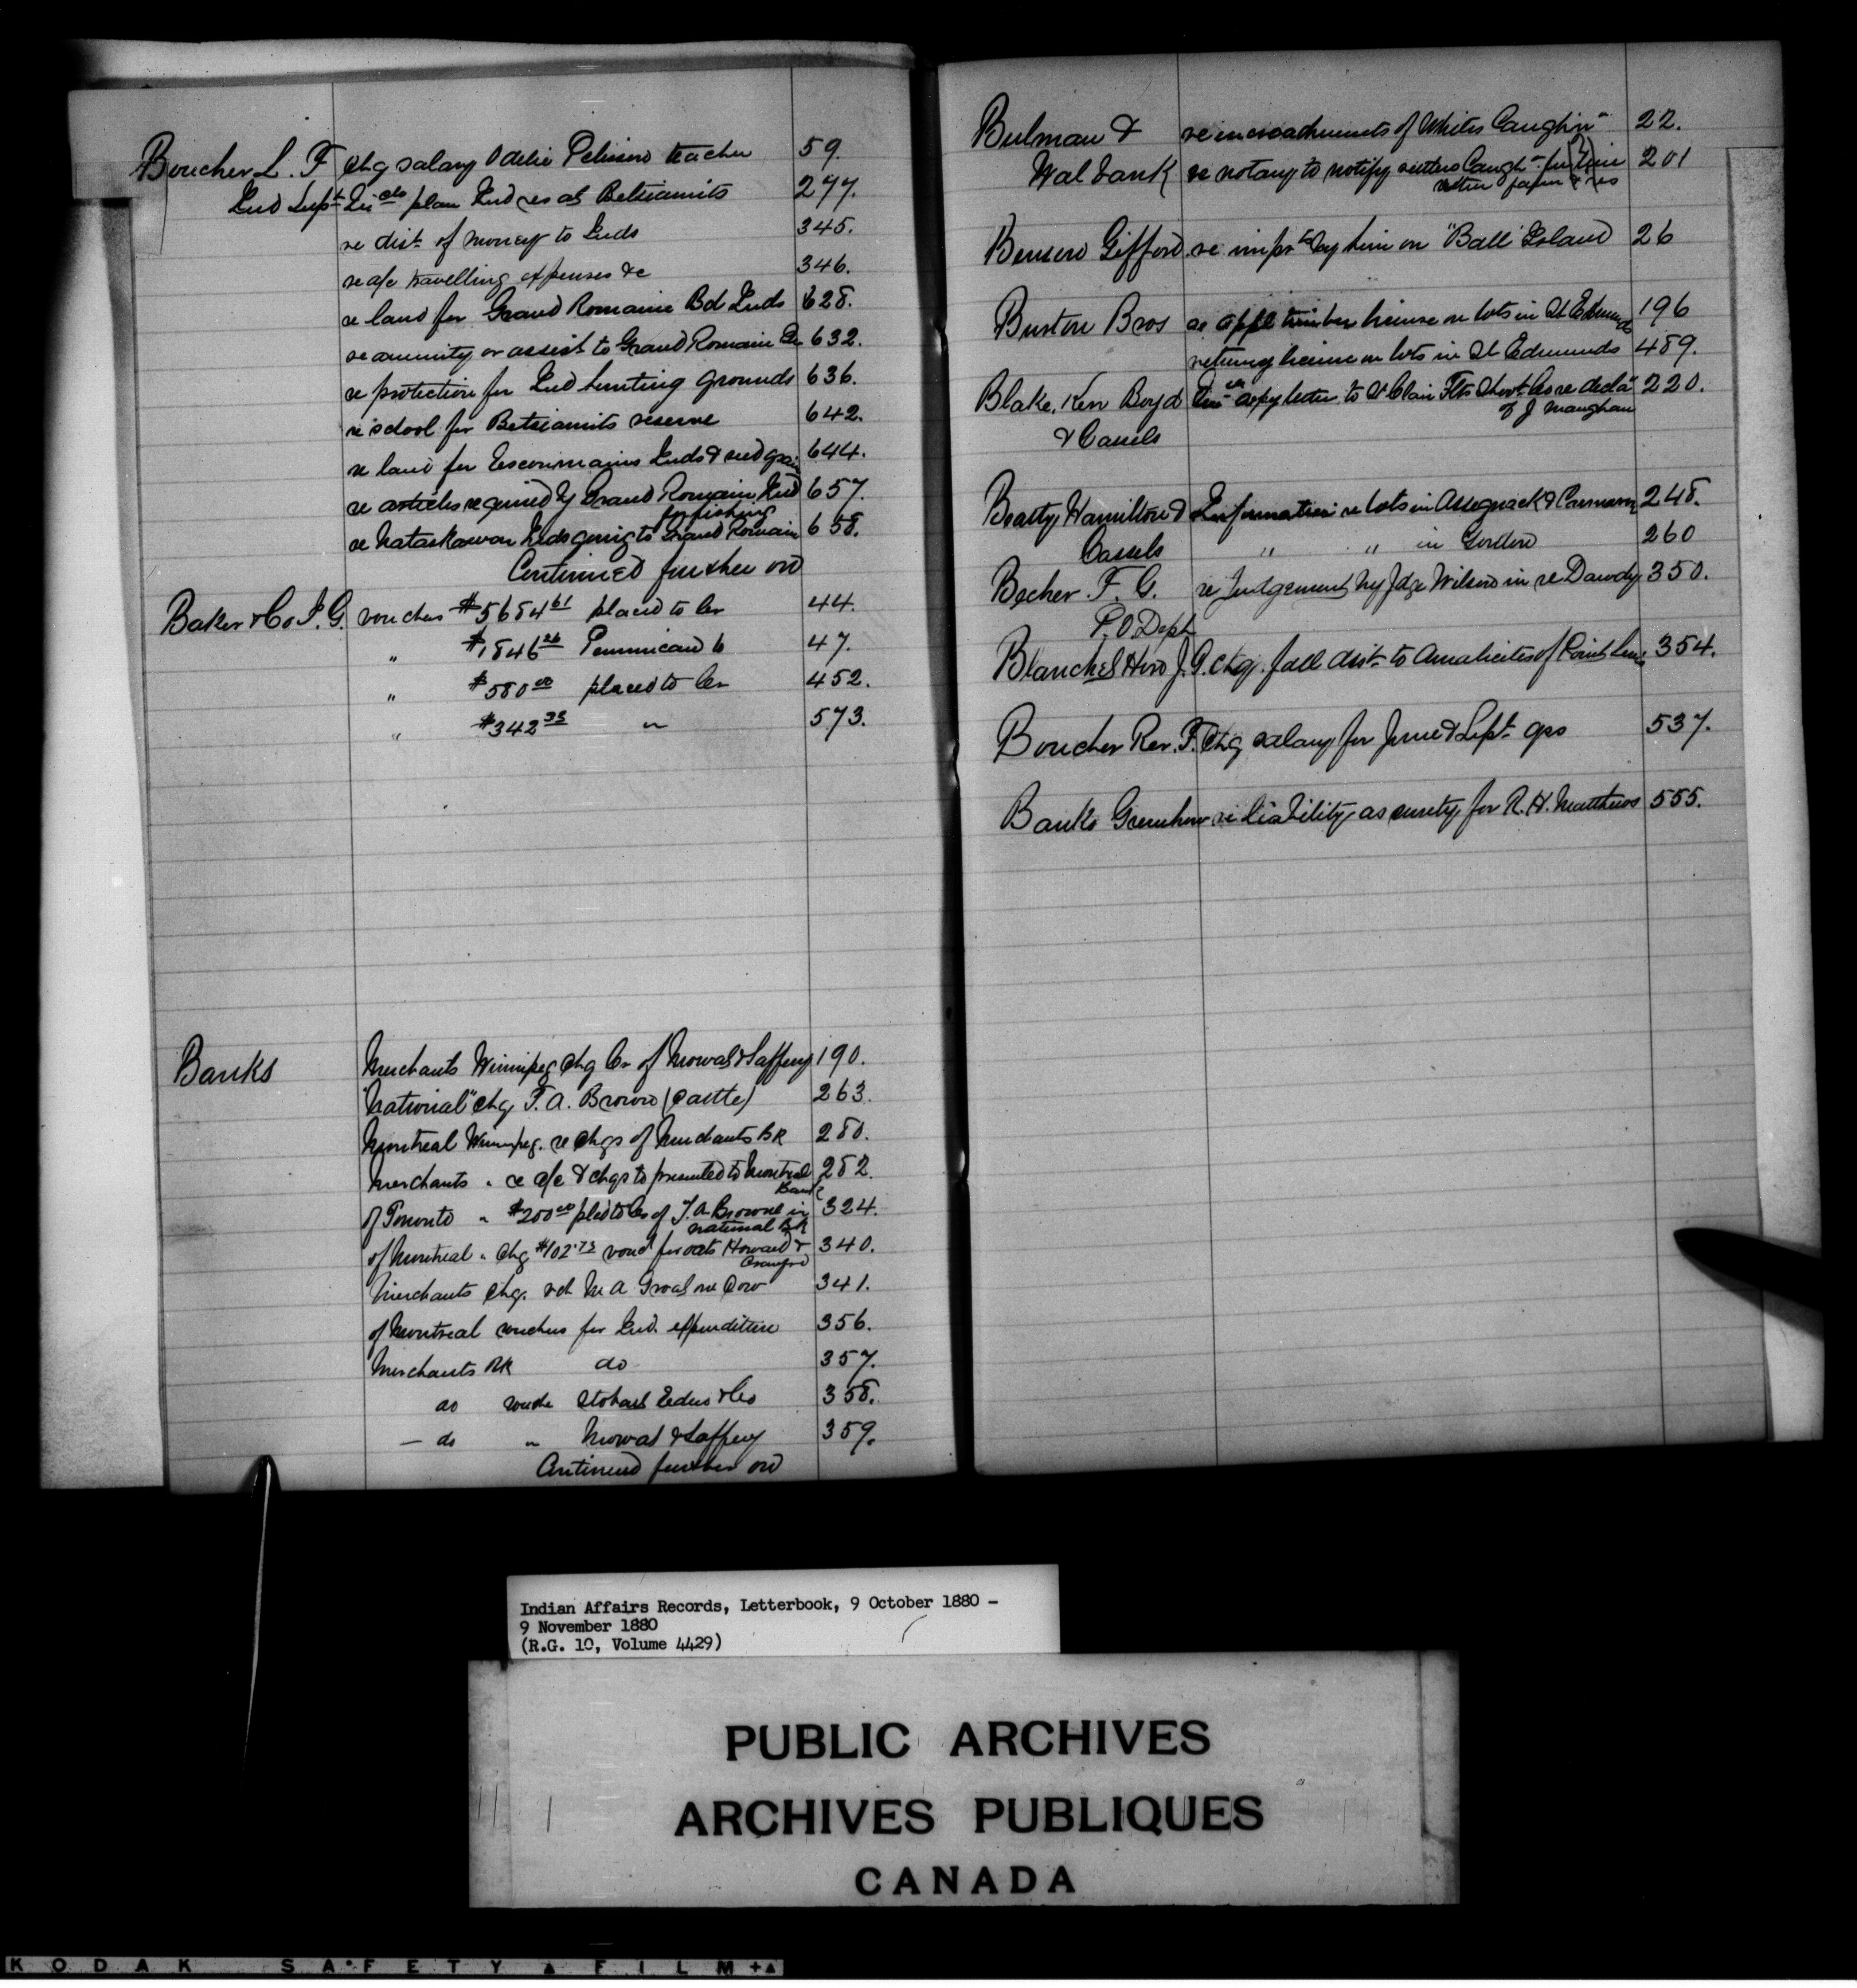 Boucher L. F chg salary Odelie Pelissier teacher 59.
Ind Supt plan Ind res at Betsiamits 277.
re dist of money to Inds 345.
re a/c travelling expenses &c 346.
re land for Grand Romaine Bd Inds 628.
re annuity or assist to Grand Romain 632.
re protection for Ind hunting grounds 636.
re school for Betsiamits reserve 642.
re land for Escoumains Inds & seed grain 644.
re articles required by Grand Romain Ind 657.
for fishing
re Nataskawan Inds going to Grand Romain 658.
Continued further on
Baker & Co I. G. vouchers $5684 61 placed to Cr 44.
" $1846 26 Pemmican 47.
" $580 00 placed to Cr 452.
" $342 33 " 573.
Banks Merchants Winnipeg chg Cr of Mowat & Saffery 190.
"National" chg T. A. Brown (cattle) 263.
Montreal Winnipeg. re chgs of Merchants BK 280.
Merchants " re a/c & chqs to presented to Montreal 282.
Bank
of Toronto " $200 00 pled to Cr of T. A. Browne in 324.
National BK
of Montreal " Chg $102.73 voucr for oats Howard & 340.
Crawford
Merchants chg. M A Groat one Cow 341.
of Montreal vouchers for Ind. expenditure 356.
Merchants BK do 357.
do Stobart Eden & Co 358.
— do " Mowat & Saffery 359.
Continued further on
Bulman & re encroachments of Whites Caughn 22.
Walbank re notary to notify settlers Caugh 201
Benson Gifford re impr by him on "Ball" Island 26
Burton Bros re appl timber license on lots in St Edmunds 196
returng license on lots in St Edmunds 489.
Blake, Kerr Boyd copy letter to St Clair Flts Shoot Co re decla 220.
of J Maughan
& Cassels
Beatty, Hamilton & Information re lots in Assiginack & Carnarvon 248.
Cassels " " in Gordon 260
Becher F. G. re Judgement by Jdge Wilson in re Dawdy 350.
P. O Dept
Blanchet Hon J. G. chg. fall dist to Amalicites of Point Levis 354.
Boucher Rev. F. Chg salary for June & Sept qrs 537.
Banks Greenhow re liability as surety for R. H. Matthews 555.
Indian Affairs Records, Letterbook, 9 October 1880 -
9 November 1880
(R.G. 10, Volume 4429)
PUBLIC ARCHIVES
ARCHIVES PUBLIQUES
CANADA
KODAK SAFETY FILM